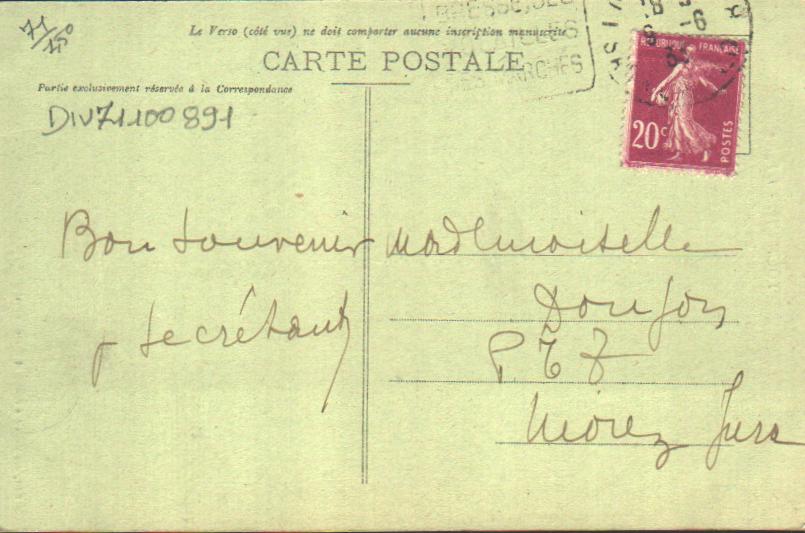 71/150
Le Verso (côté vue) ne doit comporter aucune inscription manuscrite
CARTE POSTALE
Partie exclusivement réservée à la Correspondance
DIV71100891
REPUBLIQUE FRANÇAISE
20c
POSTES
Bon souvenir
Mademoiselle
P T T
Morez Jura